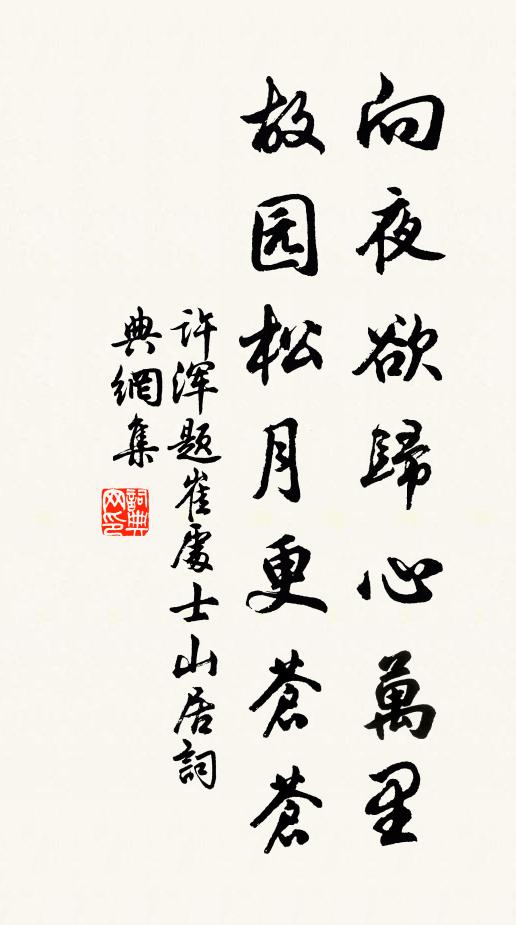 向夜欲歸心萬里
故园松月更蒼蒼
许浑题崔處士山居詞
典網集
詞典网印